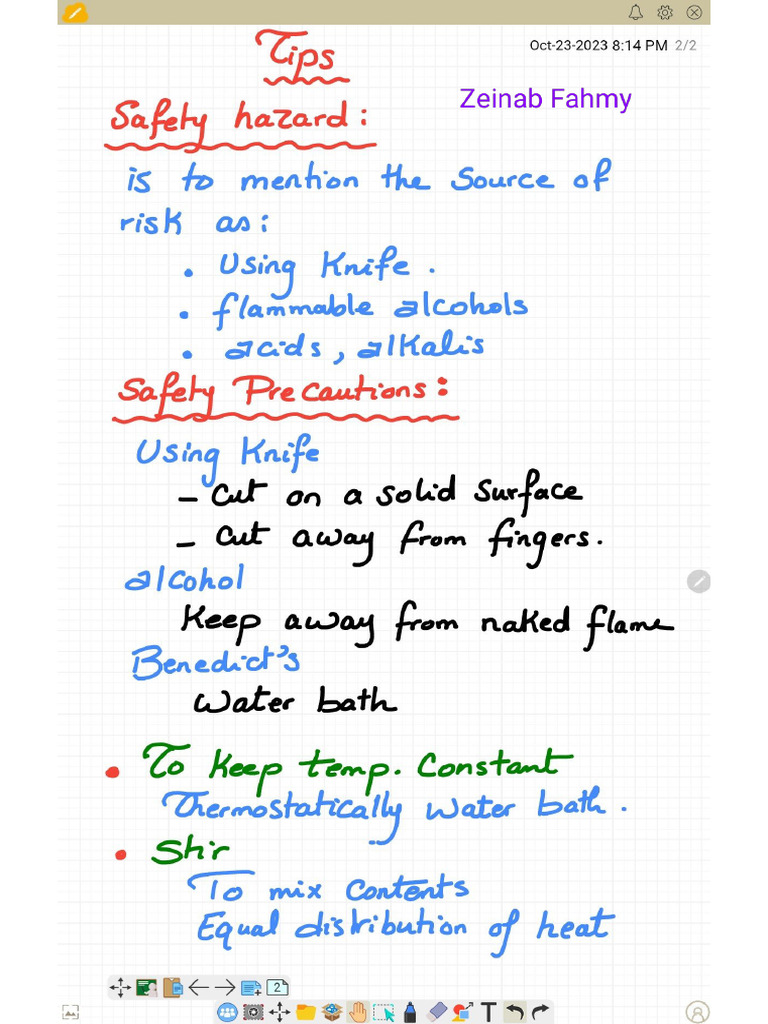 Oct-23-2023 8:14 PM 2/2
Tips
Zeinab Fahmy
Safety hazard:
is to mention the source of
risk as:
• Using Knife.
• flammable alcohols
• acids, alkalis
Safety Precautions:
Using Knife
- Cut on a solid surface
- Cut away from fingers.
alcohol
Keep away from naked flame
Benedict's
Water bath
• To Keep temp. Constant
Thermostatically water bath.
• Stir
To mix contents
Equal distribution of heat
2
T